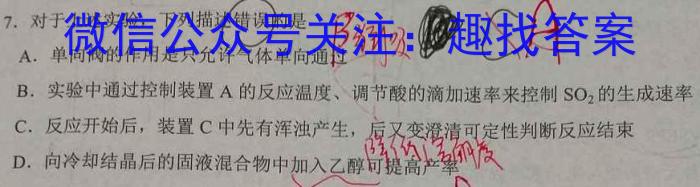 7. 对于上述实验，下列描述错误的是
微信公众号关注：趣找答案
A．单向阀的作用是只允许气体单向通过
B．实验中通过控制装置 A 的反应温度、调节酸的滴加速率来控制 SO₂ 的生成速率
C．反应开始后，装置 C 中先有浑浊产生，后又变澄清可定性判断反应结束
D．向冷却结晶后的固液混合物中加入乙醇可提高产率